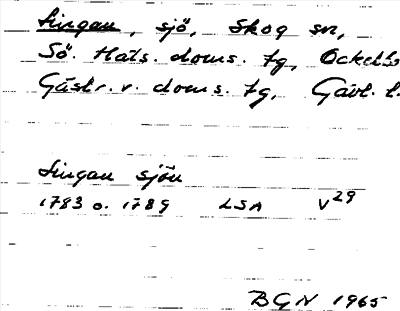 Lingan, sjö, Skog sn,
Sö. Häls. doms. tg, Ockelbo
Gästr. v. doms. tg, Gävl. l.
Lingan sjön
1783 o. 1789 LSA V29
BGN 1965